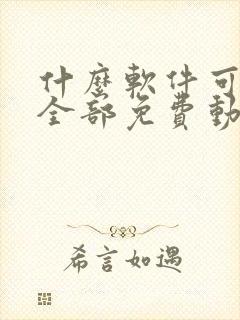 什麼軟件可
全部免費動
希言如遇